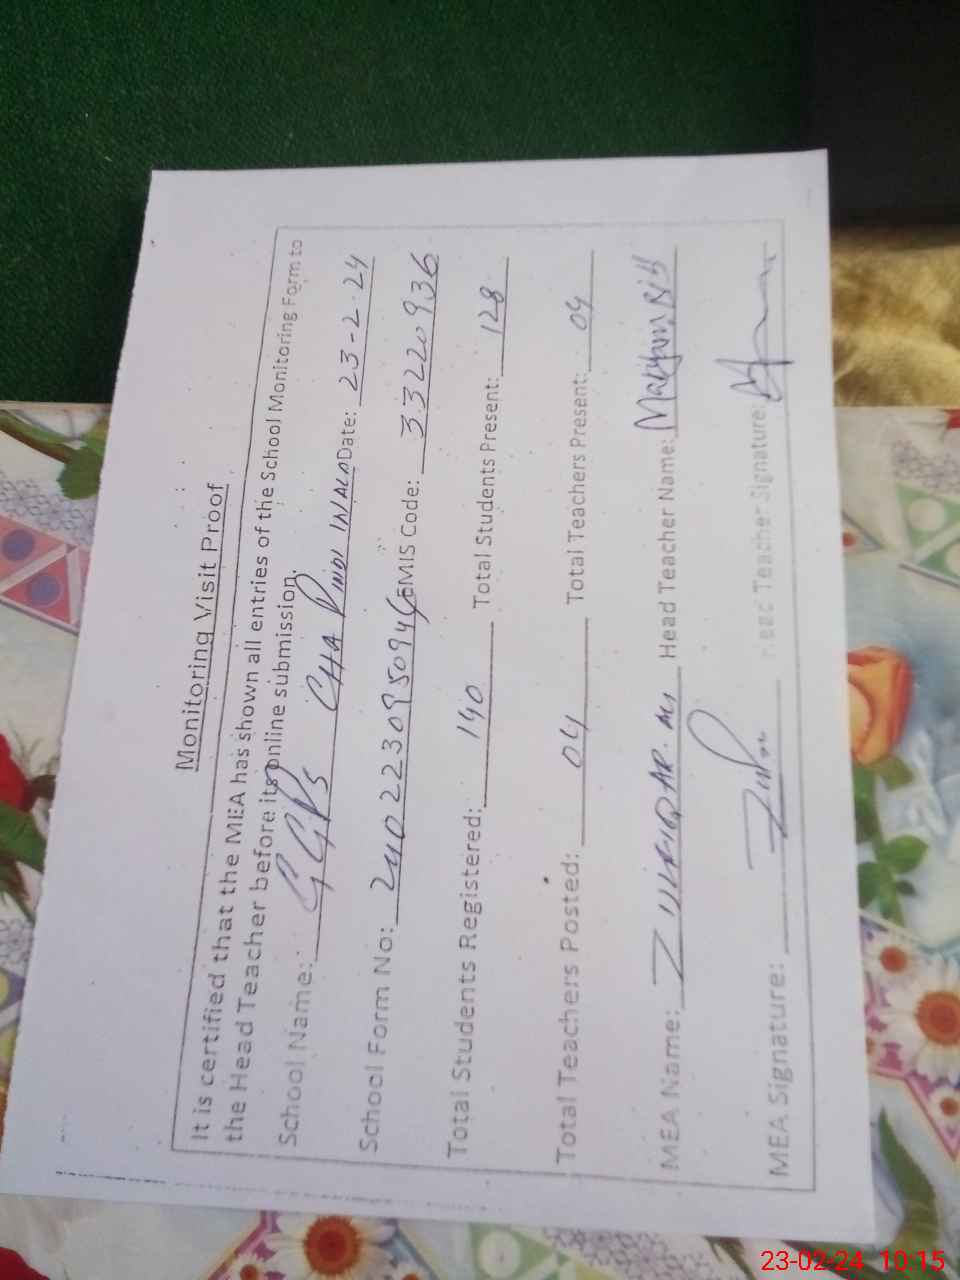 Monitoring Visit Proof
It is certified that the MEA has shown all entries of the School Monitoring Form to
the Head Teacher before its online submission.
School Name: GGPS CHA PINDI Date: 23-2-24
School Form No: EMIS Code: 33220936
Total Students Registered: 140 Total Students Present: 128
Total Teachers Posted: 04 Total Teachers Present: 04
MEA Name: ZULFIQAR ALI Head Teacher Name: Maryam Bibi
MEA Signature: Head Teacher Signature:
23-02-24 10:15